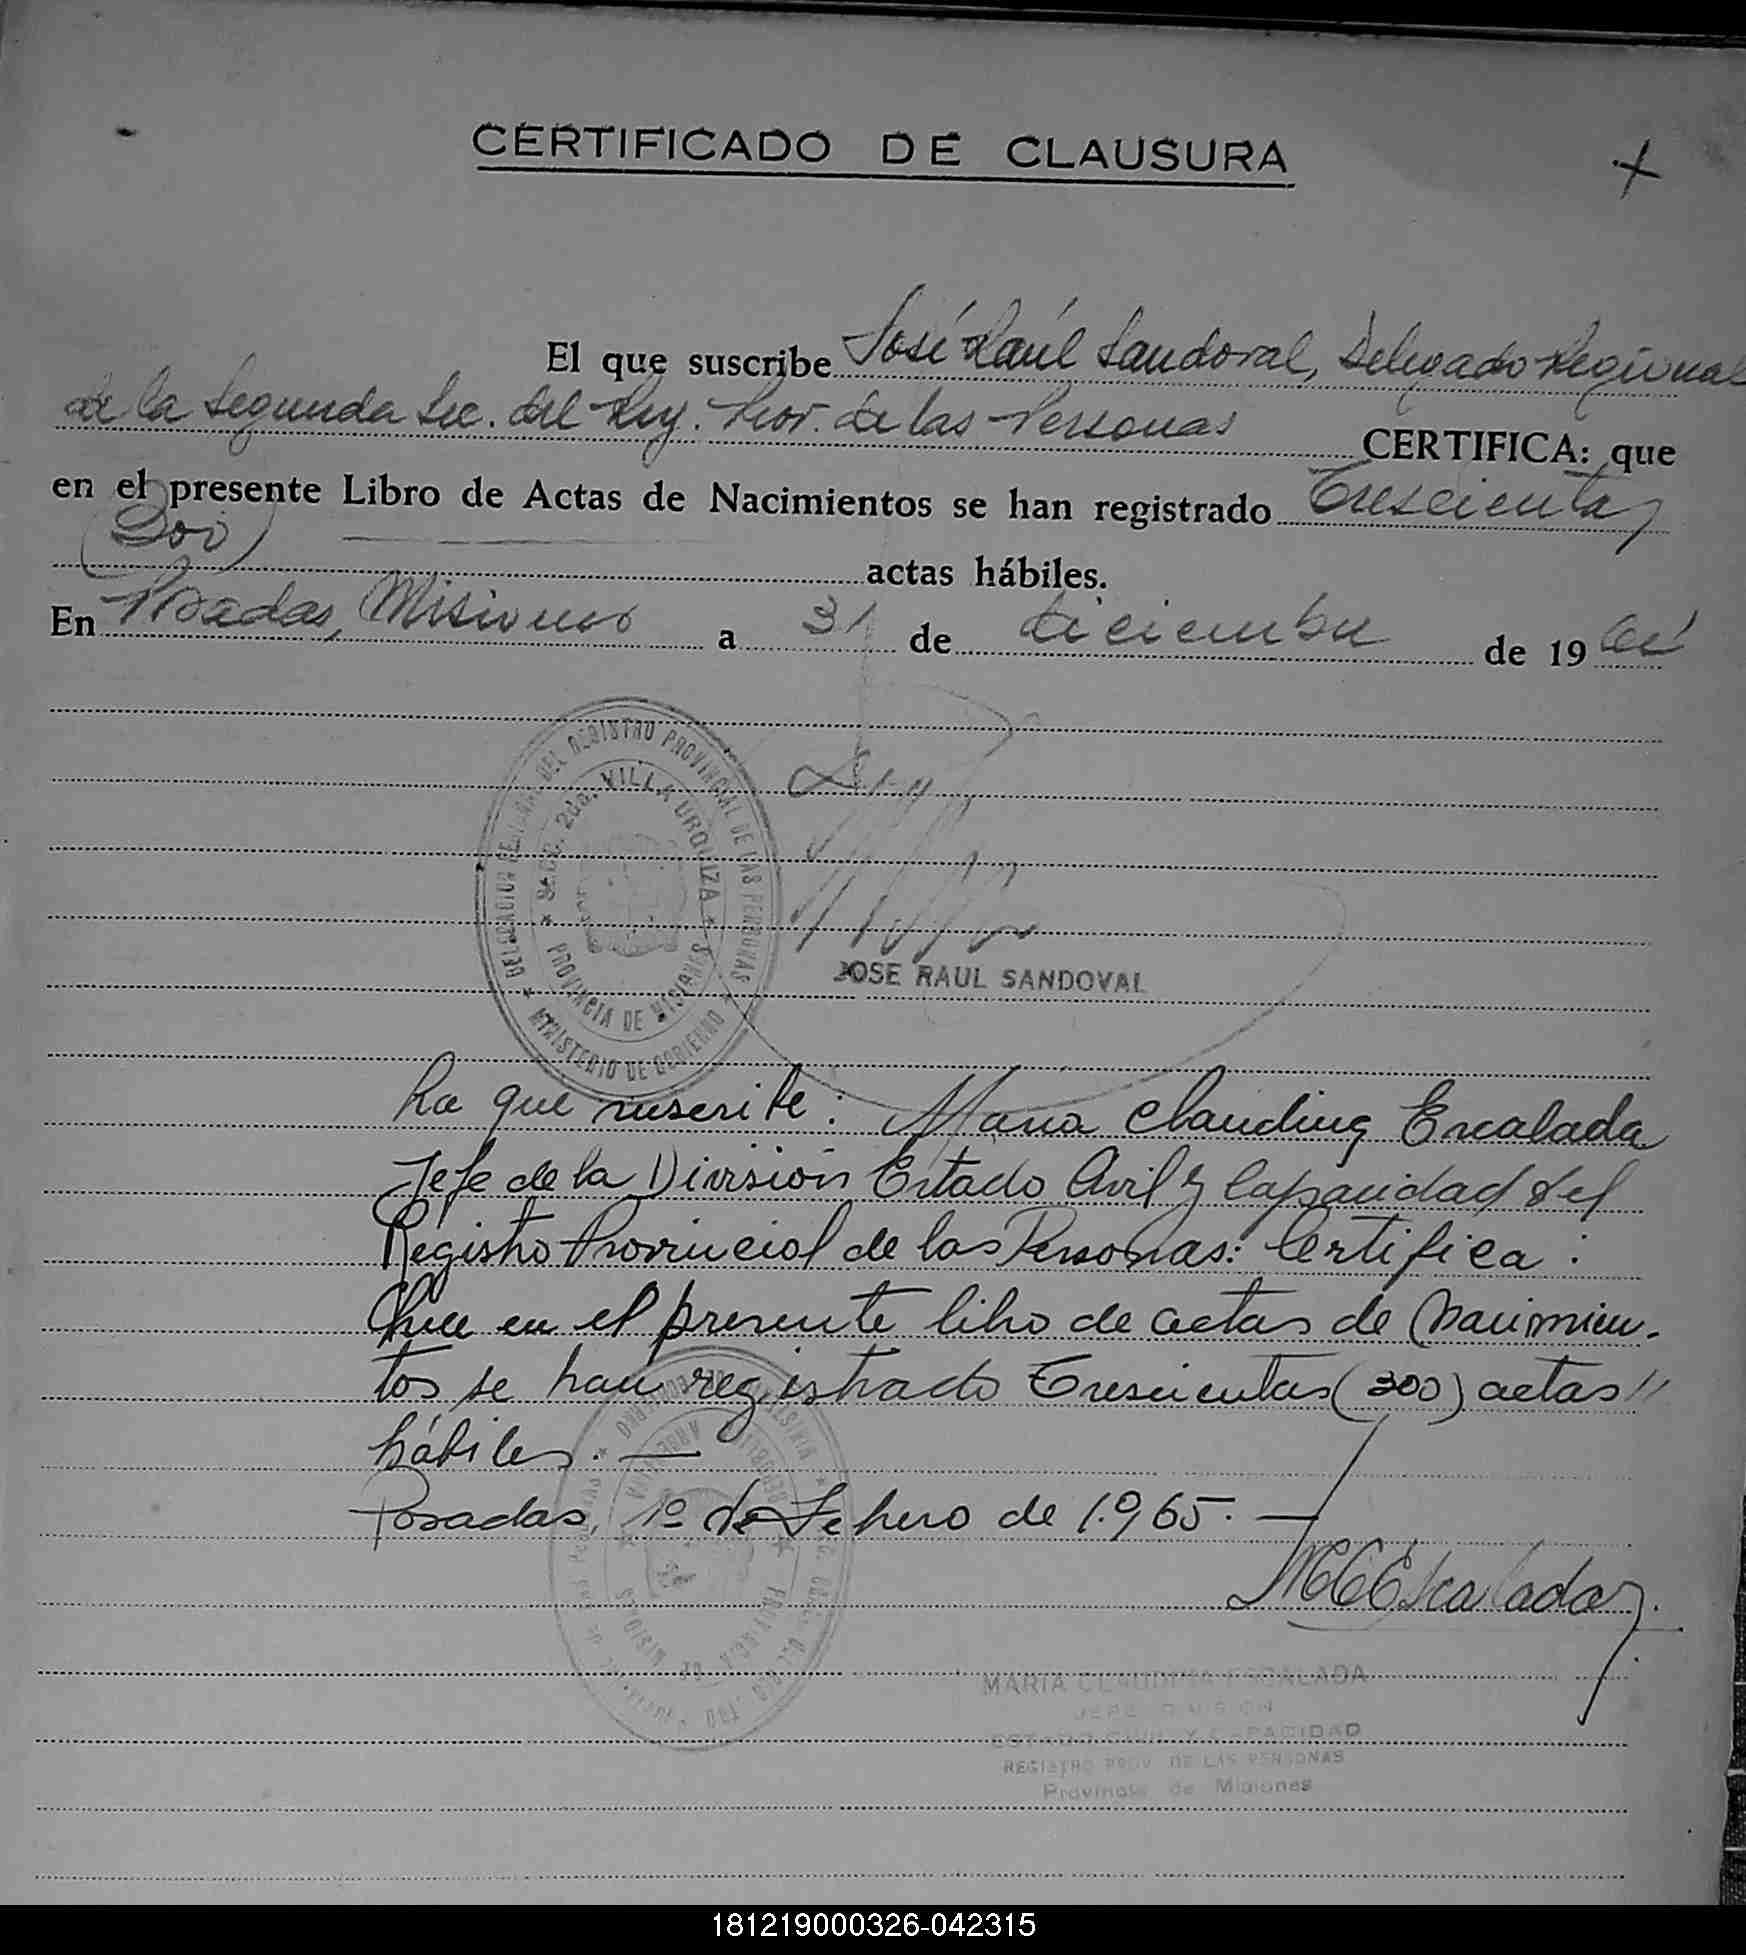 CERTIFICADO DE CLAUSURA
El que suscribe José Raúl Sandoval, Delegado Regional
de la Segunda Sec. del Reg. Prov. de las Personas CERTIFICA: que
en el presente Libro de Actas de Nacimientos se han registrado Trescientas
(300) actas hábiles.
En Posadas, Misiones a 31 de diciembre de 19
DELEGACION REGIONAL DEL REGISTRO PROVINCIAL DE LAS PERSONAS
Secc. 2da. VILLA URQUIZA
PROVINCIA DE MISIONES
MINISTERIO DE GOBIERNO
JOSE RAUL SANDOVAL
La que suscribe: Maria Claudina Escalada
Jefe de la División Estado Civil y Capacidad del
Registro Provincial de las Personas: Certifica:
Que en el presente libro de actas de Nacimien-
tos se han registrado Trescientas (300) actas //
hábiles. —
Posadas, 1º de Febrero de 1.965. —
MCEscalada
MARIA CLAUDINA ESCALADA
JEFE DIVISION
ESTADO CIVIL Y CAPACIDAD
REGISTRO PROV. DE LAS PERSONAS
Provincia de Misiones
181219000326-042315